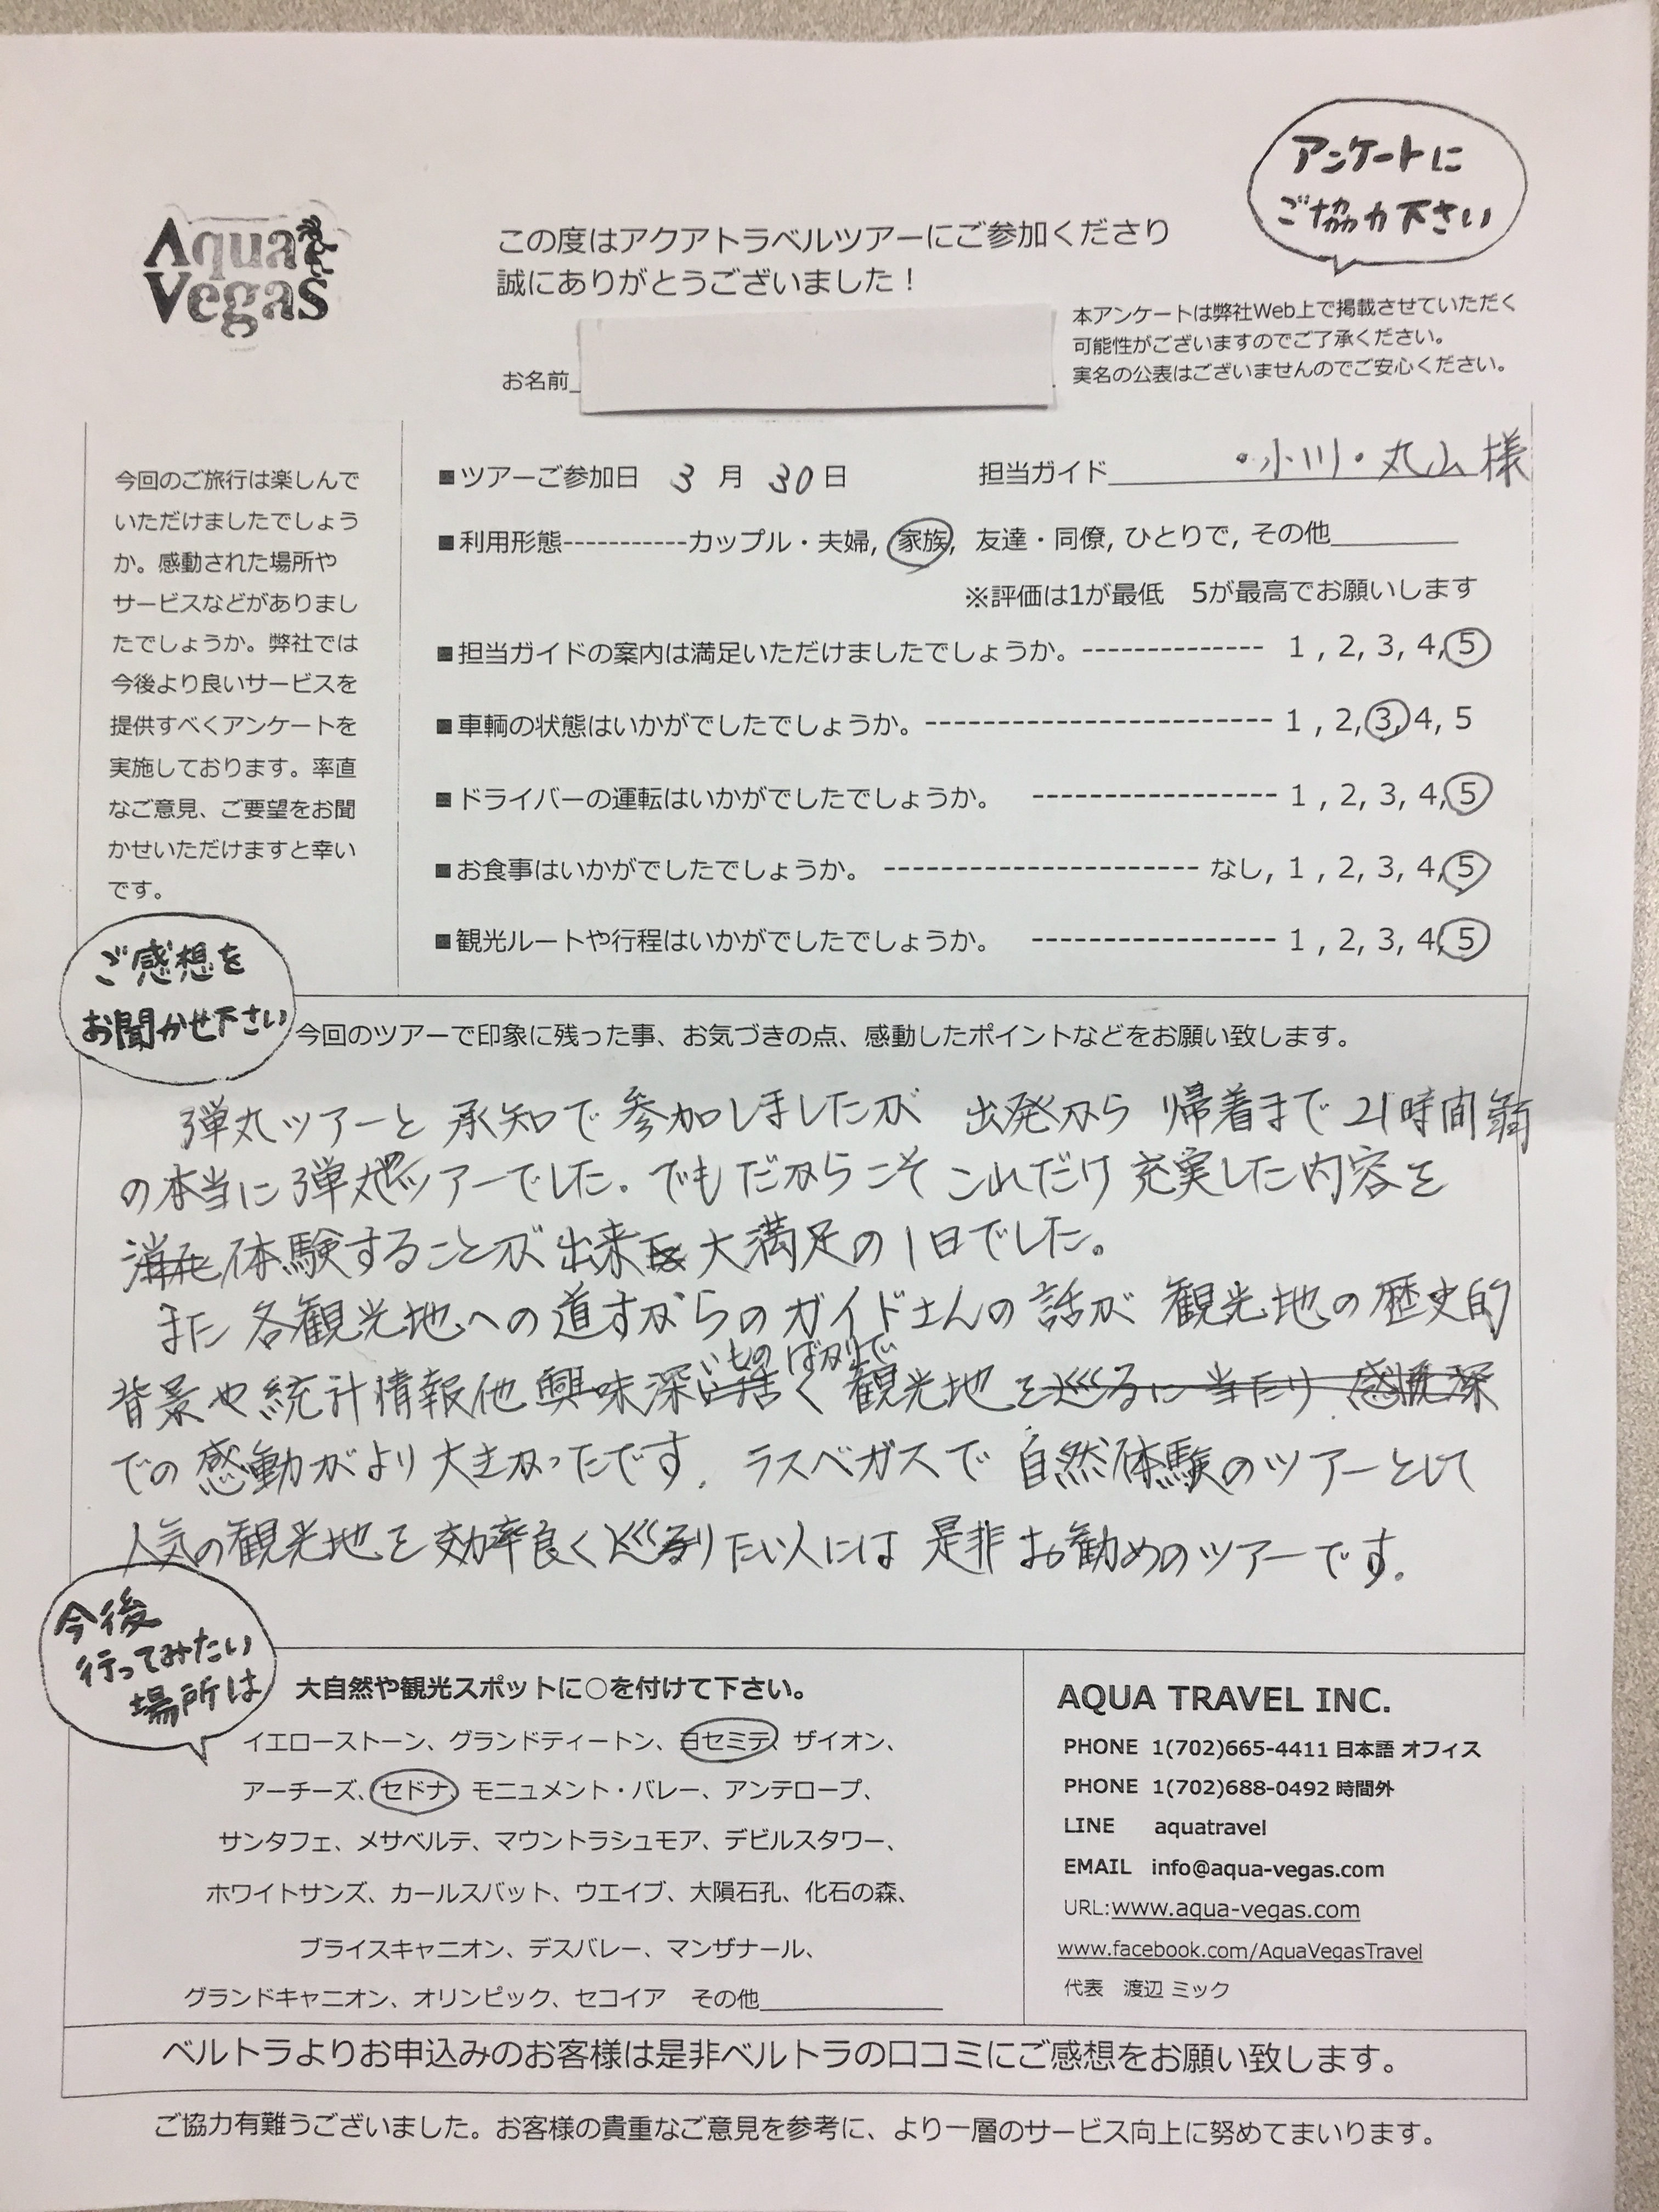 アンケートに
ご協力下さい
Aqua
Vegas
この度はアクアトラベルツアーにご参加くださり
誠にありがとうございました！
本アンケートは弊社Web上で掲載させていただく
可能性がございますのでご了承ください。
実名の公表はございませんのでご安心ください。
お名前
今回のご旅行は楽しんで
いただけましたでしょう
か。感動された場所や
サービスなどがありまし
たでしょうか。弊社では
今後より良いサービスを
提供すべくアンケートを
実施しております。率直
なご意見、ご要望をお聞
かせいただけますと幸い
です。
■ツアーご参加日 3 月 30 日 担当ガイド ・小川・丸山 様
■利用形態-----------カップル・夫婦, 家族, 友達・同僚, ひとりで, その他
※評価は1が最低 5が最高でお願いします
■担当ガイドの案内は満足いただけましたでしょうか。-------------- 1 , 2, 3, 4, 5
■車輌の状態はいかがでしたでしょうか。----------------------- 1 , 2, 3, 4, 5
■ドライバーの運転はいかがでしたでしょうか。 ----------------- 1 , 2, 3, 4, 5
■お食事はいかがでしたでしょうか。 --------------------- なし, 1 , 2, 3, 4, 5
■観光ルートや行程はいかがでしたでしょうか。 ----------------- 1 , 2, 3, 4, 5
ご感想を
お聞かせ下さい
今回のツアーで印象に残った事、お気づきの点、感動したポイントなどをお願い致します。
弾丸ツアーと承知で参加しましたが 出発から帰着まで21時間弱
の本当に弾丸ツアーでした。でもだからこそこれだけ充実した内容を
体験することが出来 大満足の1日でした。
また各観光地への道すがらのガイドさんの話が観光地の歴史的
背景や統計情報他興味深いものばかりで 観光地
での感動がより大きかったです。ラスベガスで自然体験のツアーとして
人気の観光地を効率良く巡りたい人には是非お勧めのツアーです。
今後
行ってみたい
場所は
大自然や観光スポットに○を付けて下さい。
イエローストーン、グランドティートン、ヨセミテ、ザイオン、
アーチーズ、セドナ、モニュメント・バレー、アンテロープ、
サンタフェ、メサベルテ、マウントラシュモア、デビルスタワー、
ホワイトサンズ、カールスバット、ウエイブ、大隕石孔、化石の森、
ブライスキャニオン、デスバレー、マンザナール、
グランドキャニオン、オリンピック、セコイア その他
AQUA TRAVEL INC.
PHONE 1(702)665-4411 日本語 オフィス
PHONE 1(702)688-0492 時間外
LINE aquatravel
EMAIL info@aqua-vegas.com
URL:www.aqua-vegas.com
www.facebook.com/AquaVegasTravel
代表 渡辺 ミック
ベルトラよりお申込みのお客様は是非ベルトラの口コミにご感想をお願い致します。
ご協力有難うございました。お客様の貴重なご意見を参考に、より一層のサービス向上に努めてまいります。